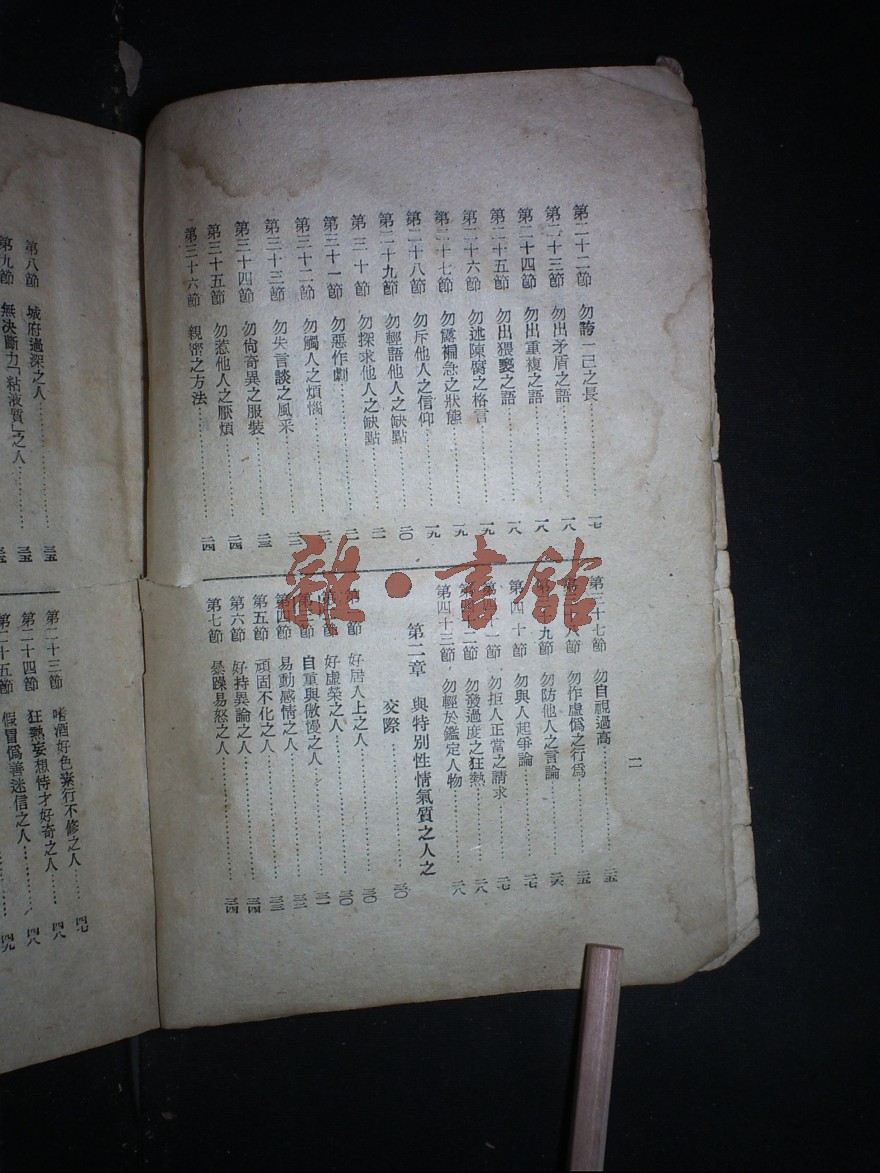 第二十二節 勿誇一己之長…………一七
第二十三節 勿出矛盾之語…………一八
第二十四節 勿出重複之語…………一八
第二十五節 勿出猥褻之語…………一八
第二十六節 勿述陳腐之格言…………一九
第二十七節 勿露褊急之狀態…………一九
第二十八節 勿斥他人之信仰…………一九
第二十九節 勿輕語他人之缺點…………二〇
第三十節 勿探求他人之缺點…………二一
第三十一節 勿惡作劇…………二一
第三十二節 勿觸人之煩惱…………二二
第三十三節 勿失言談之風采…………二二
第三十四節 勿尙奇異之服裝…………二三
第三十五節 勿惹他人之厭煩…………二四
第三十六節 親密之方法…………二四
第三十七節 勿自視過高…………二五
第三十八節 勿作虛僞之行爲…………二五
第三十九節 勿防他人之言論…………二六
第四十節 勿與人起爭論…………二七
第四十一節 勿拒人正當之請求…………二七
第四十二節 勿發過度之狂熱…………二八
第四十三節 勿輕於鑑定人物…………二八
第二章 與特別性情氣質之人之
交際…………三〇
第一節 好居人上之人…………三〇
第二節 好虛榮之人…………三〇
第三節 自重與傲慢之人…………三一
第四節 易動感情之人…………三二
第五節 頑固不化之人…………三三
第六節 好持異論之人…………三四
第七節 暴躁易怒之人…………三四
二
第八節 城府過深之人…………三五
第九節 無決斷力「粘液質」之人…………三五
第二十三節 嗜酒好色素行不修之人…………四七
第二十四節 狂熱妄想恃才好奇之人…………四八
第二十五節 假冒僞善迷信之人…………四九
雜·書館